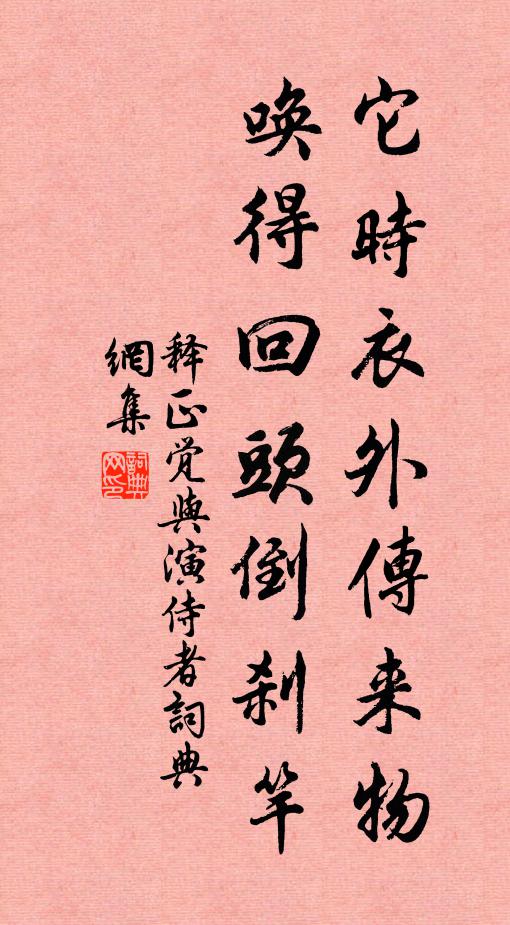 它時衣外傳来物
喚得回頭倒刹竿
释正覚與演侍者詞典
網集
詞典网印